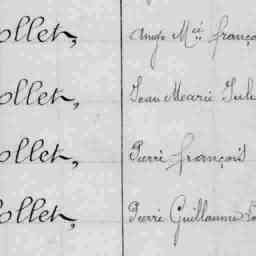 ollet, Ange Mie franço
ollet, Jean Marie Jule
ollet, Pierre françois
ollet, Pierre Guillaume